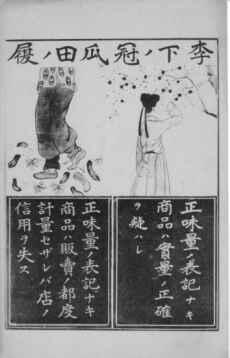 李下ノ冠瓜田ノ履
正味量ノ表記ナキ
商品ハ實量ノ正確
ヲ疑ハレ
正味量ノ表記ナキ
商品ハ販賣ノ都度
計量セザレバ店ノ
信用ヲ失ス